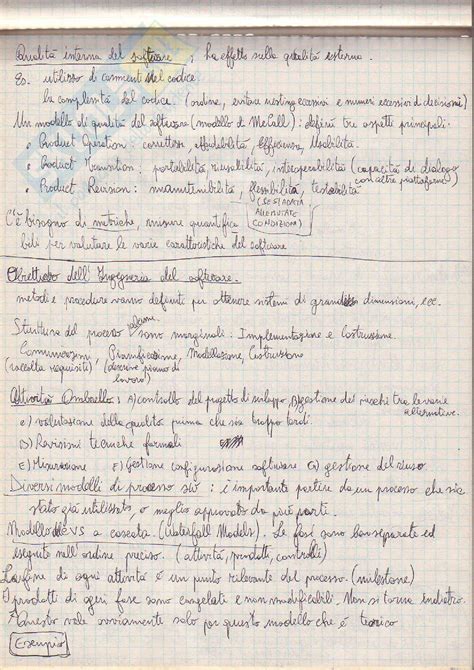 Qualità interna del software : ha effetto sulla qualità esterna.
Es. utilizzo di commenti nel codice
la complessità del codice (ordine, evitare nesting eccessivi e numeri eccessivi di decisioni)
Un modello di qualità del software (modello di McCall): definì tre aspetti principali:
• Product Operation: correttezza, affidabilità, efficienza, usabilità.
• Product Transition: portabilità, riusabilità, interoperabilità (capacità di dialogo
con altre piattaforme)
• Product Revision: manutenibilità, flessibilità, testabilità
(adattate
condizioni)
C'è bisogno di metriche, misure quantifica
bili per valutare le varie caratteristiche del software
Obiettivo dell'Ingegneria del software.
metodi e procedure vanno definiti per ottenere sistemi di grandi dimensioni, ecc.
Struttura del processo sono marginali: Implementazione e Costruzione.
Comunicazioni, Pianificazione, Modellazione, Costruzione
(raccolta requisiti) (descrive piano di
lavoro)
Attività Ombrello: A) controllo del progetto di sviluppo, B) gestione dei rischi tra le varie
alternative.
C) valutazione della qualità prima che sia troppo tardi.
D) Revisioni tecniche formali
E) Misurazione F) Gestione configurazione software G) gestione del riuso
Diversi modelli di processo sw: è importante partire da un processo che sia
stato già utilizzato, o meglio approvato da più parti.
Modello a cascata. (Waterfall Models). Le fasi sono ben separate ed
eseguite nell'ordine preciso. (attività, prodotti, controlli)
La fine di ogni attività è un punto rilevante del processo. (milestone)
I prodotti di ogni fase sono congelati e non modificabili. Non si torna indietro.
Questo vale ovviamente solo per questo modello che è teorico
Esempio